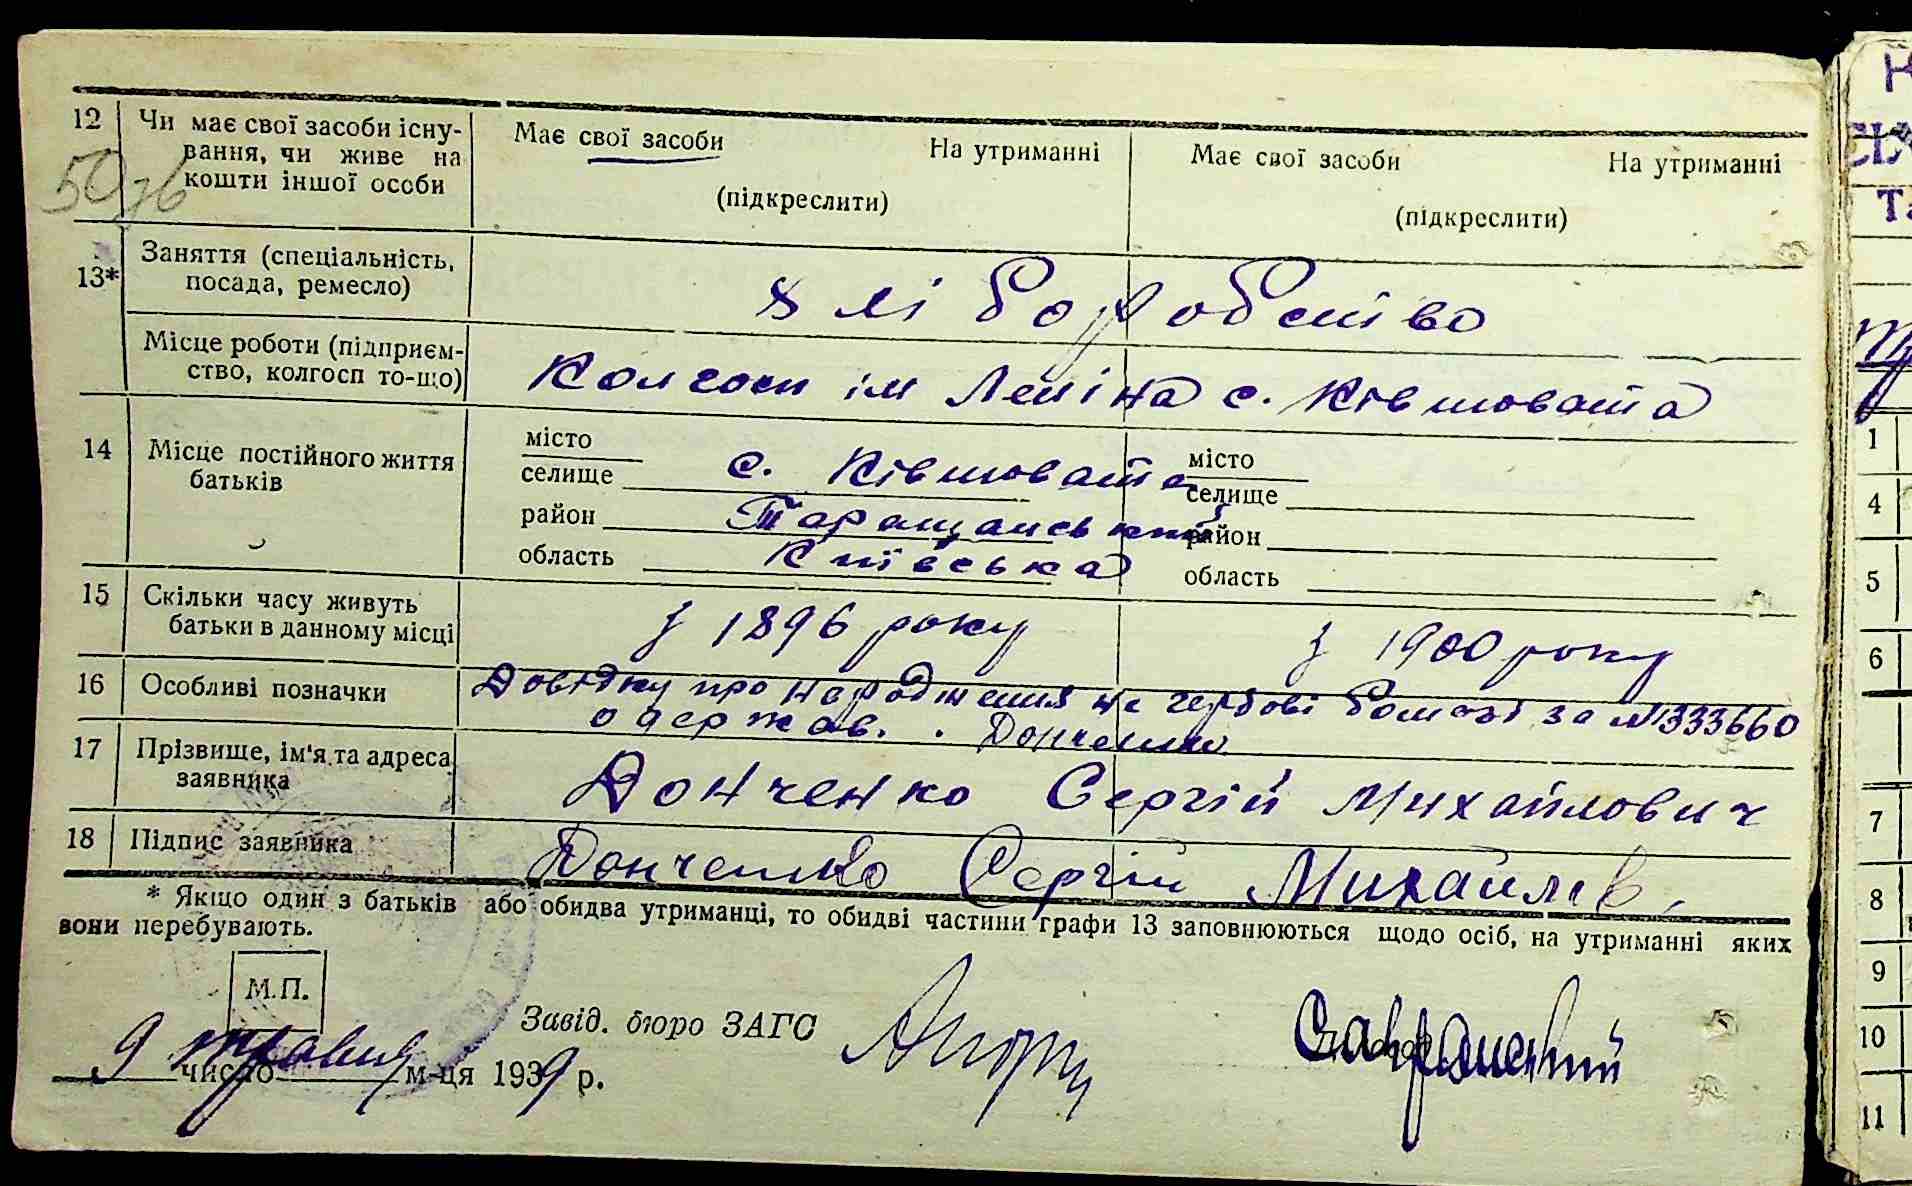 12 Чи має свої засоби існу- Має свої засоби На утриманні Має свої засоби На утриманні
вання, чи живе на
кошти іншої особи (підкреслити) (підкреслити)
50
13* Заняття (спеціальність, хліборобство
посада, ремесло)
Місце роботи (підприєм- Колгосп ім Леніна с. Ківшовата
ство, колгосп то-що)
14 Місце постійного життя батьків
місто місто
селище с. Ківшовата селище
район Таращанський район
область Київська область
15 Скільки часу живуть з 1896 року з 1900 року
батьки в данному місці
16 Особливі позначки Довідку про народження на гербові бомазі за №333660
одержав. Донченко
17 Прізвище, ім'я та адреса Донченко Сергій Михайлович
заявника
18 Підпис заявника Донченко Сергій Михайлів.
* Якщо один з батьків або обидва утриманці, то обидві частини графи 13 заповнюються щодо осіб, на утриманні яких
вони перебувають.
М.П.
Завід. бюро ЗАГС
9 травня
число м-ця 1939 р.
1
4
5
6
7
8
9
10
11